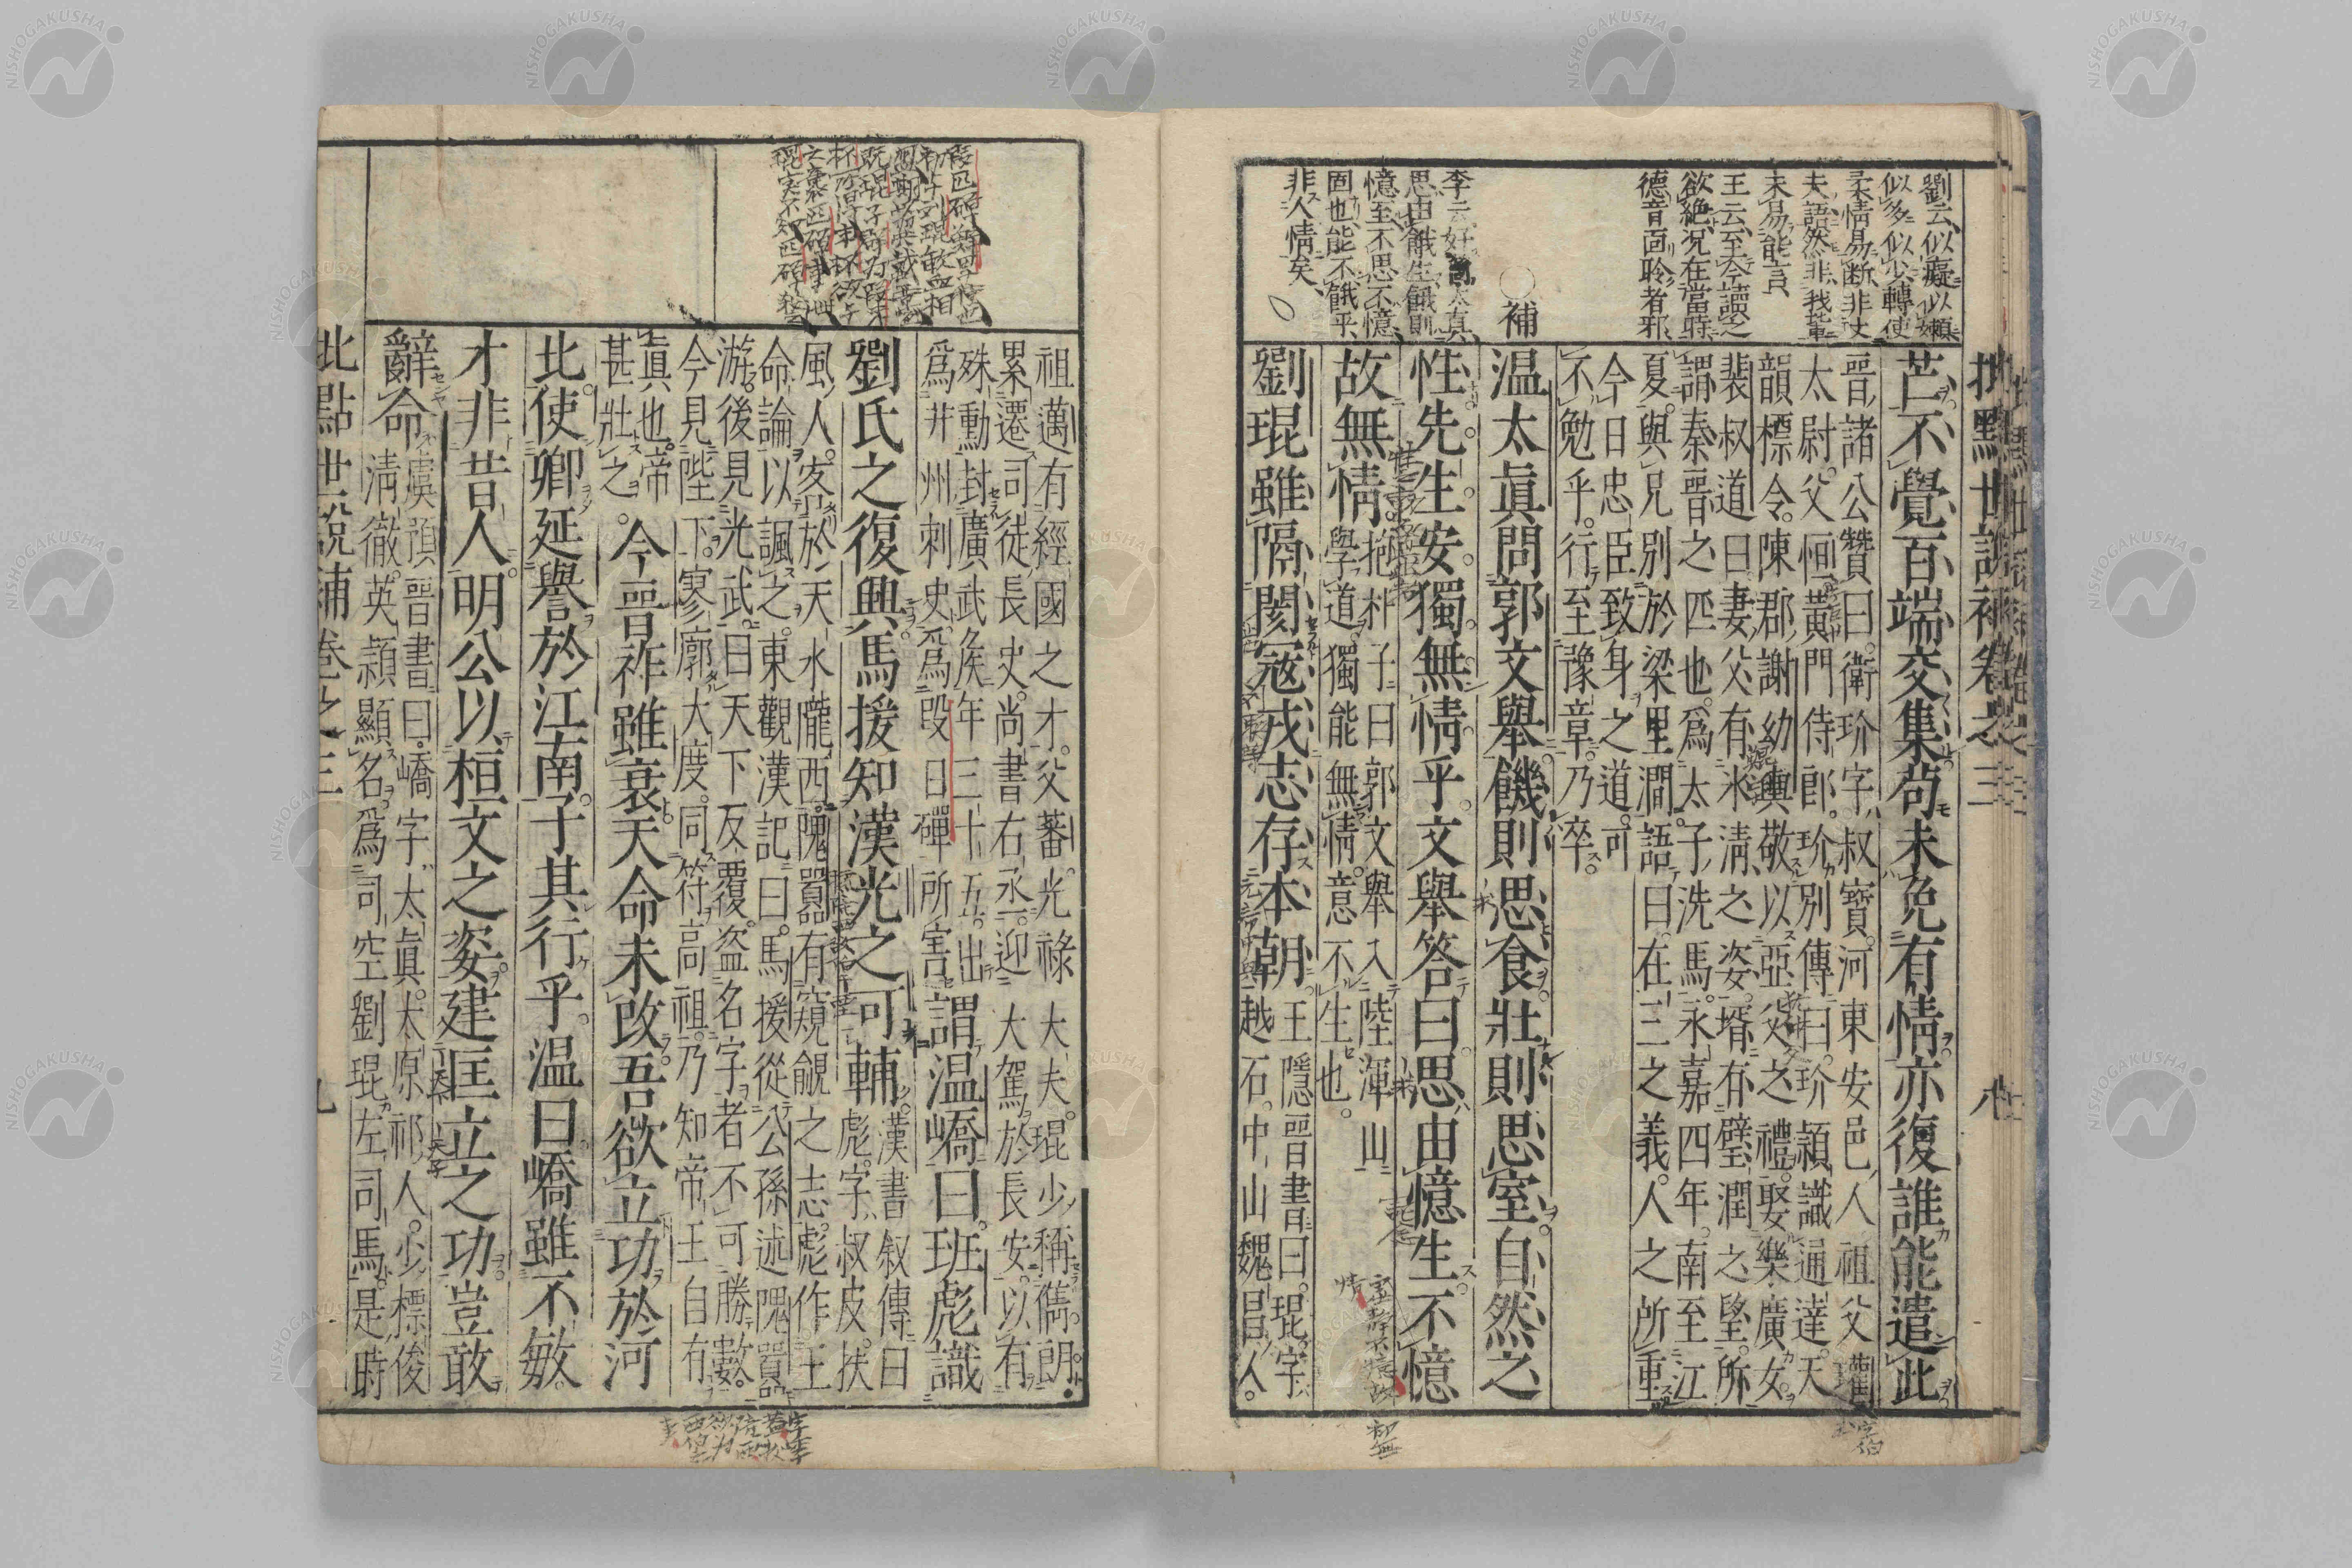 批點世說補卷之三
八
劉云似癡似懶
似多似少轉使
柔情易斷非丈
夫語然非我輩
未易能言
王云至今讀之
欲絕况在當時
德音面聆者邪
補
李云好溫太真
思由餓生餓則
憶至不思不憶
固也能不餓乎
非人情矣
芒不覺百端交集苟未免有情亦復誰能遣此
晉諸公贊曰衛玠字叔寶河東安邑人祖父瓘
太尉父恒黃門侍郎玠別傳曰玠穎識通達天
韻標令陳郡謝幼輿敬以亞父之禮娶樂廣女
裴叔道曰妻父有氷清之姿壻有璧潤之望所
謂秦晉之匹也爲太子洗馬永嘉四年南至江
夏與兄別於梁里澗語曰在三之義人之所重
今日忠臣致身之道可
不勉乎行至豫章乃卒
温太眞問郭文舉饑則思食壯則思室自然之
性先生安獨無情乎文舉答曰思由憶生不憶
故無情
抱朴子曰郭文舉入陸渾山
學道獨能無情意不生也
劉琨雖隔閡寇戎志存本朝
王隱晉書曰琨字
越石中山魏昌人
祖邁有經國之才父蕃光祿大夫琨少稱儁朗
累遷司徒長史尚書右丞迎大駕於長安以有
殊勳封廣武矦年三十五出
爲并州刺史爲叚日磾所害
謂温嶠曰班彪識
劉氏之復興馬援知漢光之可輔
漢書敘傳曰
彪字叔皮扶
風人客於天水隴西隗囂有窺覦之志彪作王
命論以諷之東觀漢記曰馬援從公孫述隗囂
游後見光武曰天下反覆盗名字者不可勝數
今見陛下寥廓大度同符高祖乃知帝王自有
眞也帝
甚壯之
今晉祚雖衰天命未改吾欲立功於河
北使卿延譽於江南子其行乎温曰嶠雖不敏
才非昔人明公以桓文之姿建匡立之功豈敢
辭命
虞預晉書曰嶠字太眞太原祁人少標俊
淸徹英穎顯名爲司空劉琨左司馬是時
批點世說補卷之三
九